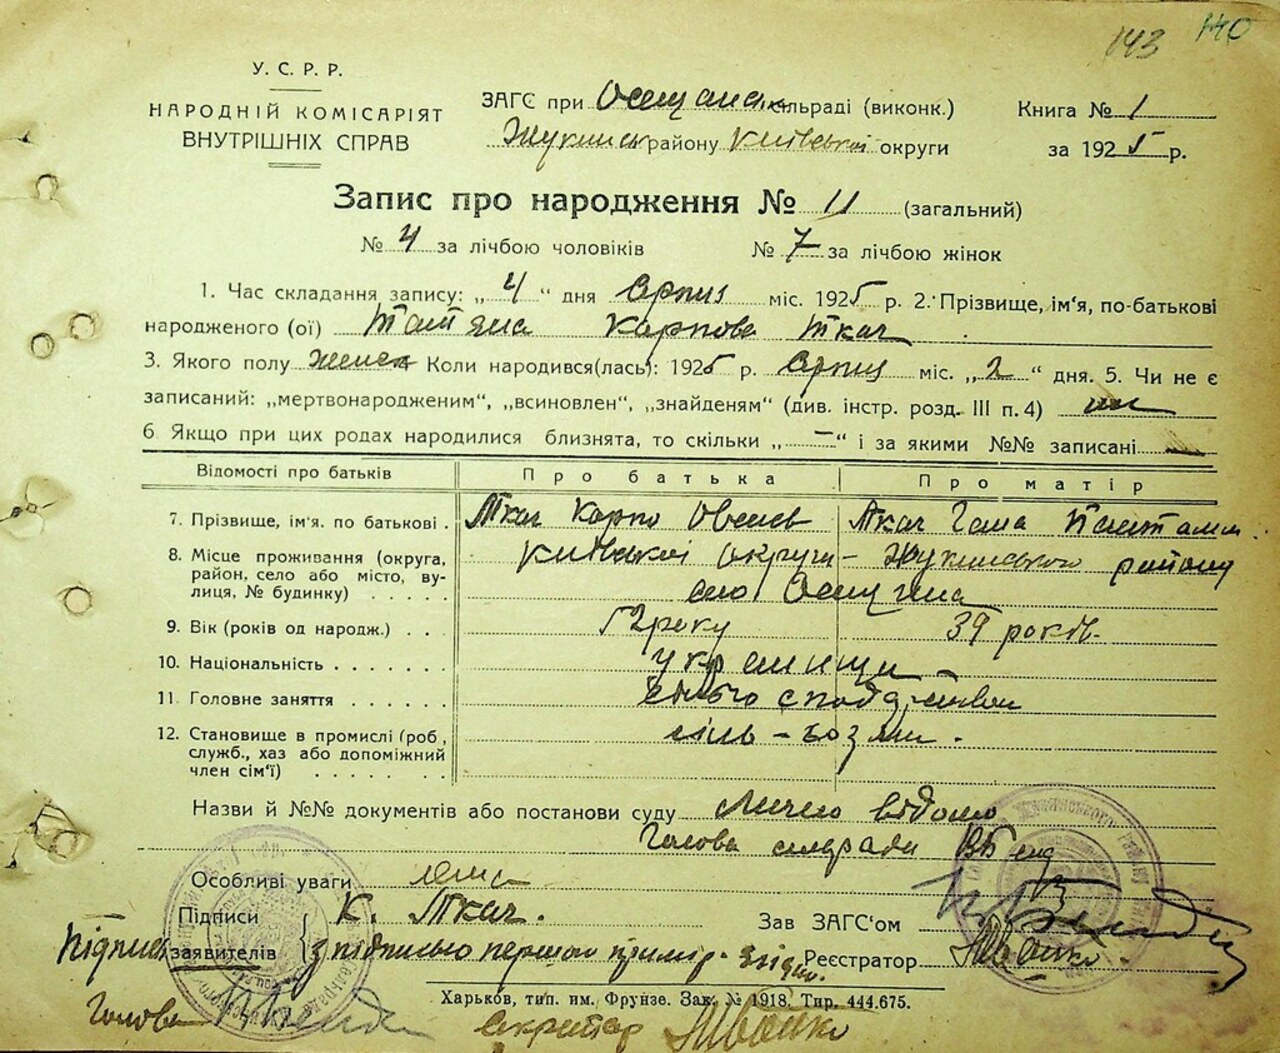 143 140
У. С. Р. Р.
НАРОДНІЙ КОМІСАРІЯТ
ВНУТРІШНІХ СПРАВ
ЗАГС при сільраді (виконк.)
району Київської округи
Книга № 1
за 1925 р.
Запис про народження № 11 (загальний)
№ 4 за лічбою чоловіків № 7 за лічбою жінок
1. Час складання запису: „4" дня Серпня міс. 1925 р. 2. Прізвище, ім'я, по-батькові
народженого (ої) Татяна Карпова Ткач
3. Якого полу женск Коли народився(лась): 1925 р. Серпня міс. „2" дня. 5. Чи не є
записаний: „мертвонародженим", „всиновлен", „знайденям" (див. інстр. розд. III п. 4)
6 Якщо при цих родах народилися близнята, то скільки „—" і за якими №№ записані —
Відомості про батьків Про батька Про матір
7. Прізвище, ім'я. по батькові. Ткач Карпо Ткач
8. Місце проживання (округа, район, село або місто, вулиця, № будинку) Київської округи - Жукинського району
село
9. Вік (років од народж.) 52 року 39 років.
10. Національність
11. Головне заняття
12. Становище в промислі (роб, служб., хаз або допоміжний член сім'ї)
Назви й №№ документів або постанови суду Лично відомо
Голова сільради
Особливі уваги
Підписи заявителів К. Ткач.
Підписи з підписью першом примір. згідно.
Зав ЗАГС'ом
Реєстратор
Харьков, тип. им. Фрунзе. Зак. № 1918. Тир. 444.675.
Голова Секретар